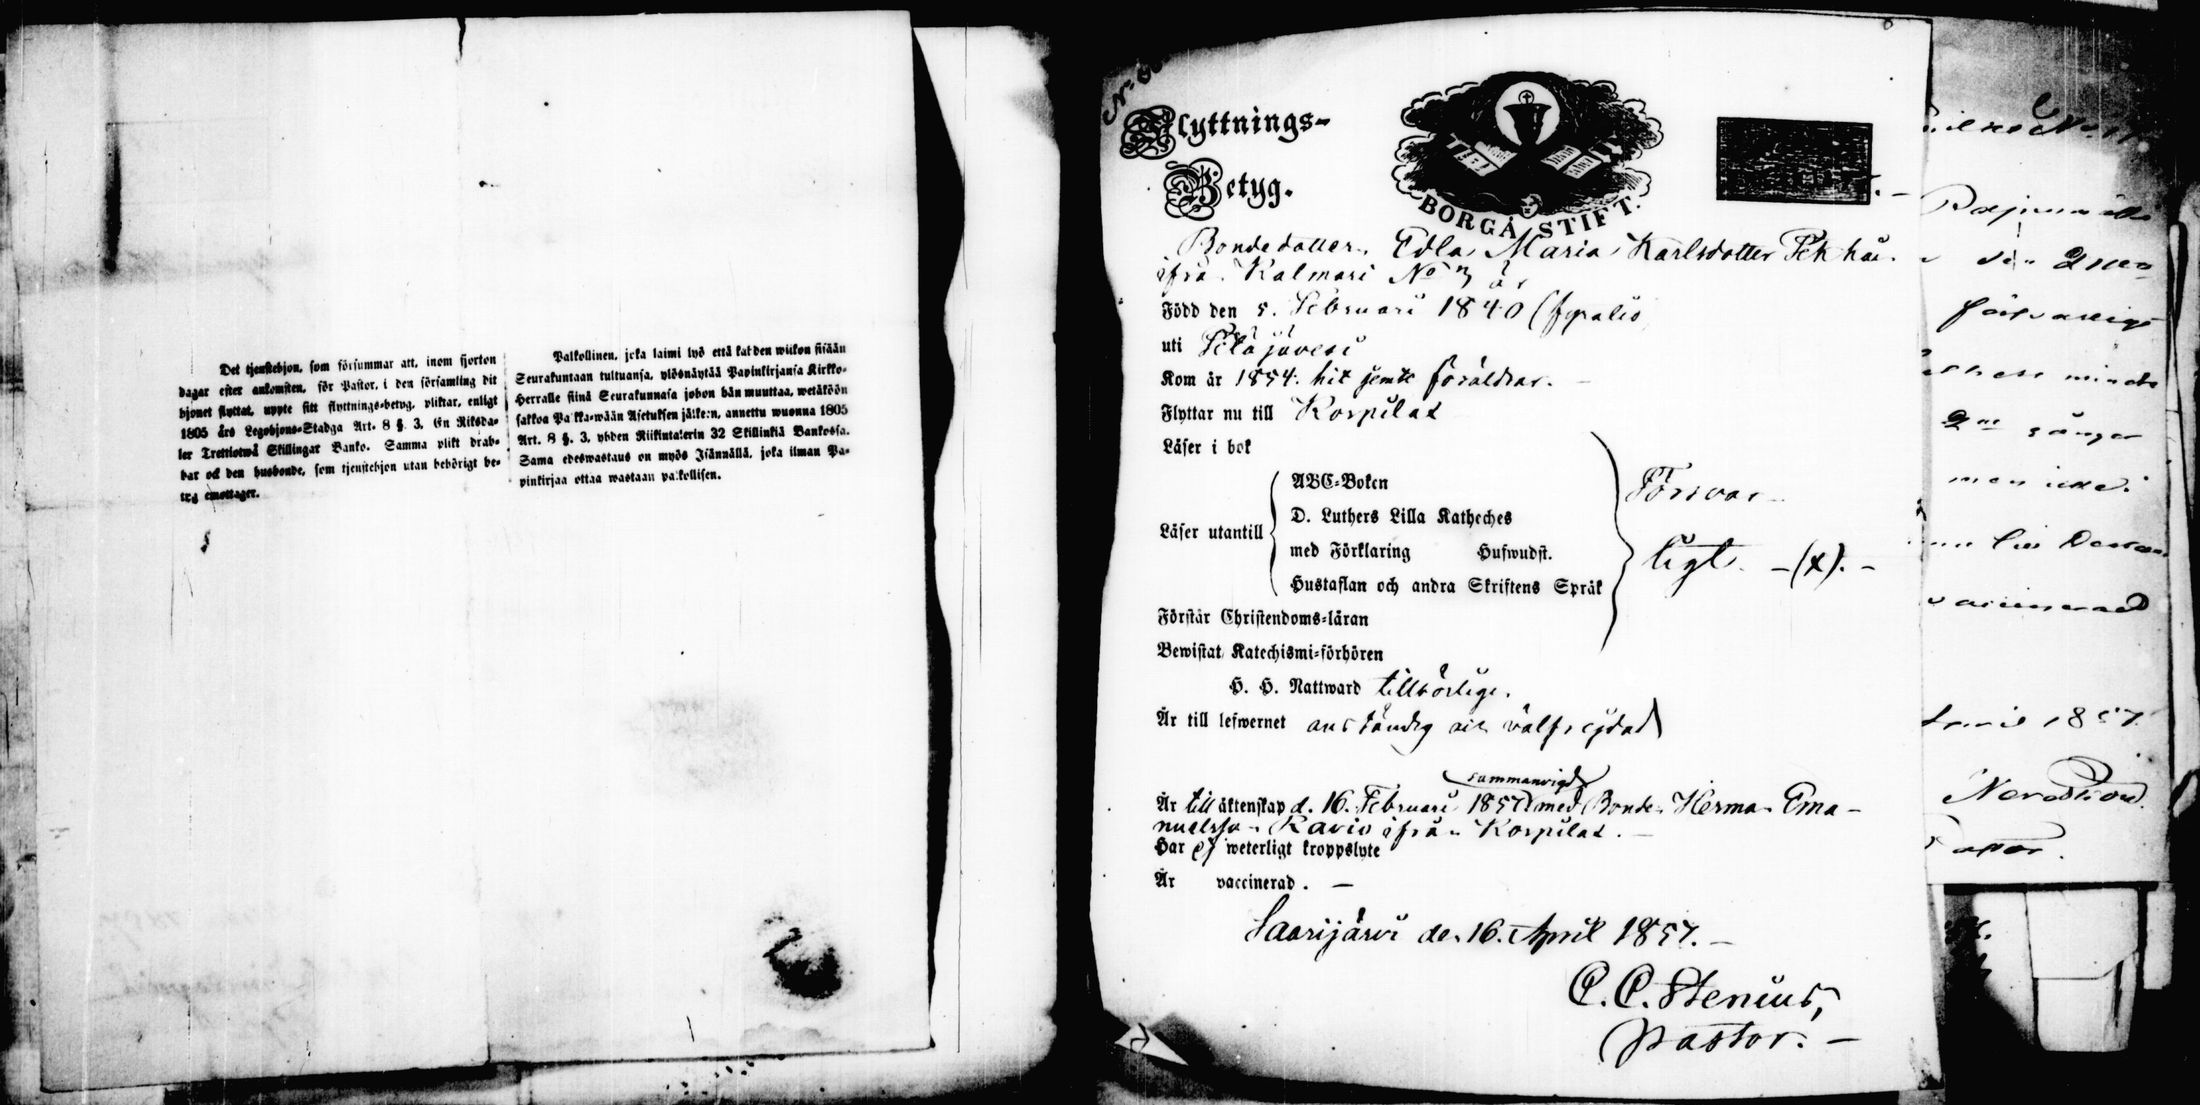 Det tjenstehjon, som försummar att, inom fjorton
dagar efter ankomsten, för Pastor, i den församling dit
hjonet flyttat, uppte sitt flyttnings-betyg, pliktar, enligt
1805 års Legohjons-Stadga Art. 8 §. 3. En Riksda-
ler Trettiotwå Skillingar Banko. Samma plikt drab-
bar ock den husbonde, som tjenstehjon utan behörigt be-
tyg emottager.
Palkollinen, joka laimi lyö että kahden wiikon sisään
Seurakuntaan tultuansa, ylösnäytää Papinkirjansa Kirkko-
Herralle siinä Seurakunnasa johon hän muuttaa, wetäköön
sakkoa Palkka-wään Asetuksen jälkeen, annettu wuonna 1805
Art. 8 §. 3, yhden Riikintalerin 32 Skillinkiä Bankossa.
Sama edeswastaus on myös Isännällä, joka ilman Pa-
pinkirjaa ottaa wastaan palkollisen.
Flyttnings-
Betyg.
BORGÅ STIFT.
Bondedotter Edla Maria Karlsdotter
ifrån Kalmari No
Född den 5. Februari 1840
uti
Kom år 1854. hit jemte föräldrar.
Flyttar nu till Korpilax
Läser i bok
Läser utantill
ABC-Boken
D. Luthers Lilla Katheches
med Förklaring Hufwudst.
Hustaflan och andra Skriftens Språk
Försvar-
ligt. -(x).-
Förstår Christendoms-läran
Bewistat Katechismi-förhören
H. H. Nattward tillbörligen.
Är till lefwernet anständig och välfrejdad
sammanvigd
Är till äktenskap d. 16. Februari 1857 med Bonden Herman Ema-
nuelsson Ravio ifrån Korpilax. -
Har ej weterligt kroppslyte
Är vaccinerad. -
Saarijärvi den 16. April 1857. -
C. C. Stenius,
Pastor. -
2
förswarligt
minsta
gånger
men icke
1857.
Pastor.